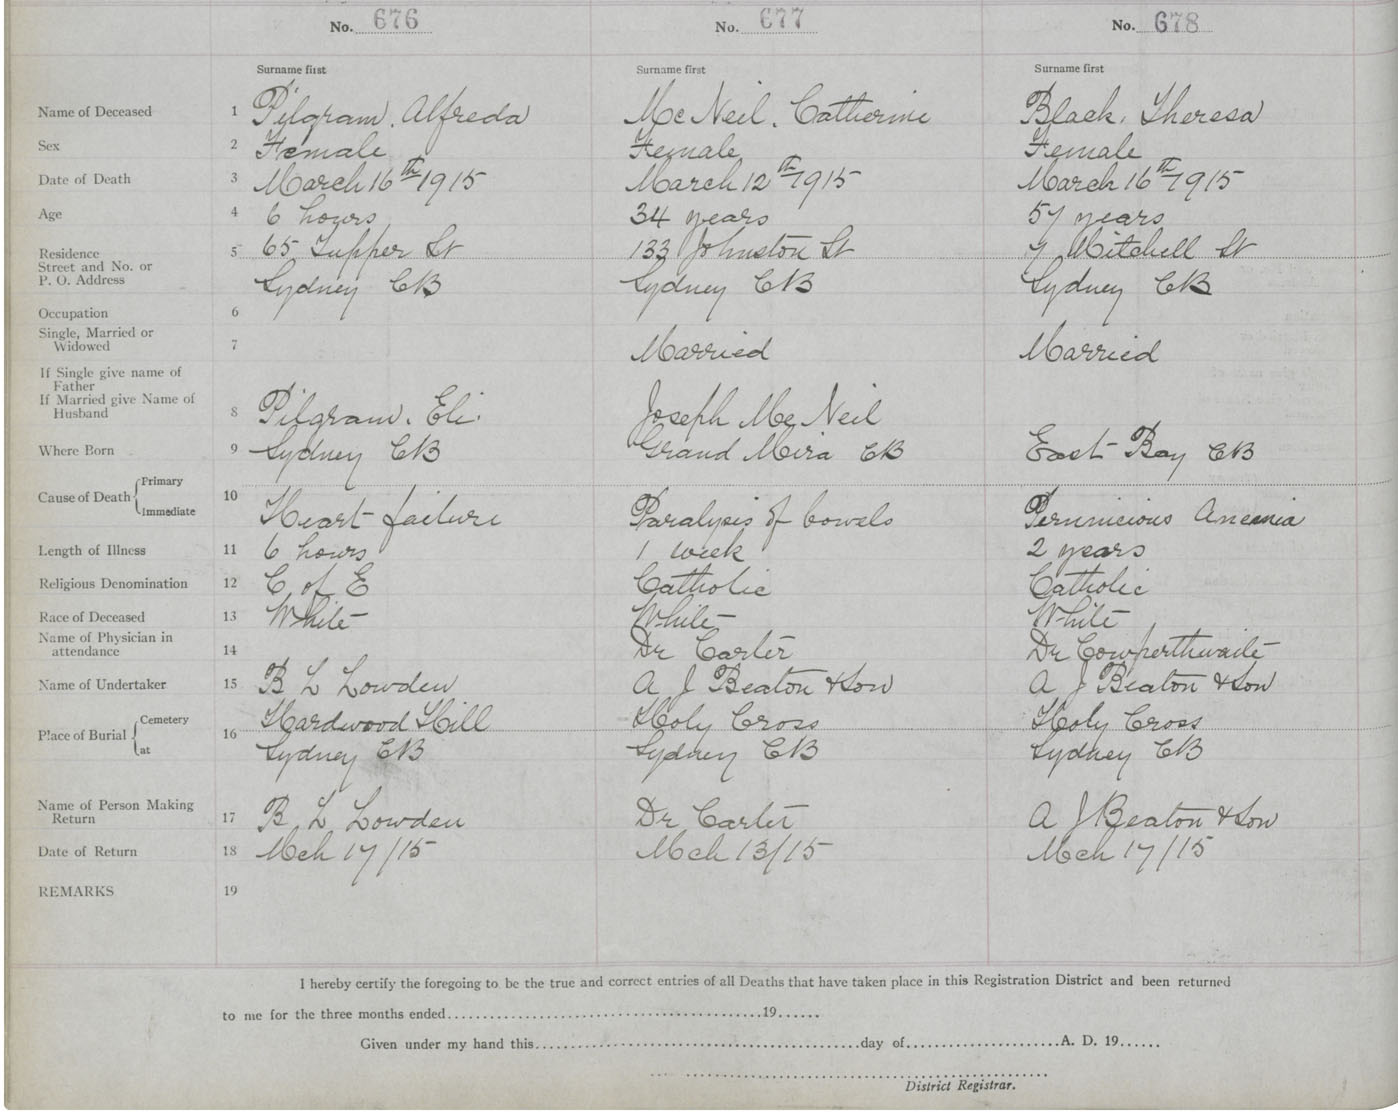 No. 676 No. 677 No. 678
Surname first Surname first Surname first
Name of Deceased 1 Pilgram, Alfreda McNeil, Catherine Black, Theresa
Sex 2 Female Female Female
Date of Death 3 March 16th 1915 March 12th 1915 March 16th 1915
Age 4 6 hours 34 years 57 years
Residence 5 65 Tupper St 133 Johnston St 7 Mitchell St
Street and No. or
P. O. Address Sydney CB Sydney CB Sydney CB
Occupation 6
Single, Married or
Widowed 7 Married Married
If Single give name of
Father
If Married give Name of
Husband 8 Pilgram. Eli. Joseph McNeil
Where Born 9 Sydney CB Grand Mira CB East Bay CB
Cause of Death Primary
10
Immediate Heart failure Paralysis of bowels Perninicious Aneamia
Length of Illness 11 6 hours 1 week 2 years
Religious Denomination 12 C of E Catholic Catholic
Race of Deceased 13 White White White
Name of Physician in
attendance 14 Dr Carter Dr Cowperthwaite
Name of Undertaker 15 B L Lowden A J Beaton & Son A J Beaton & Son
Place of Burial Cemetery 16 Hardwood Hill Holy Cross Holy Cross
at Sydney CB Sydney CB Sydney CB
Name of Person Making
Return 17 B L Lowden Dr Carter A J Beaton & Son
Date of Return 18 Mch 17/15 Mch 13/15 Mch 17/15
REMARKS 19
I hereby certify the foregoing to be the true and correct entries of all Deaths that have taken place in this Registration District and been returned
to me for the three months ended..........19......
Given under my hand this..........day of..........A. D. 19......
District Registrar.